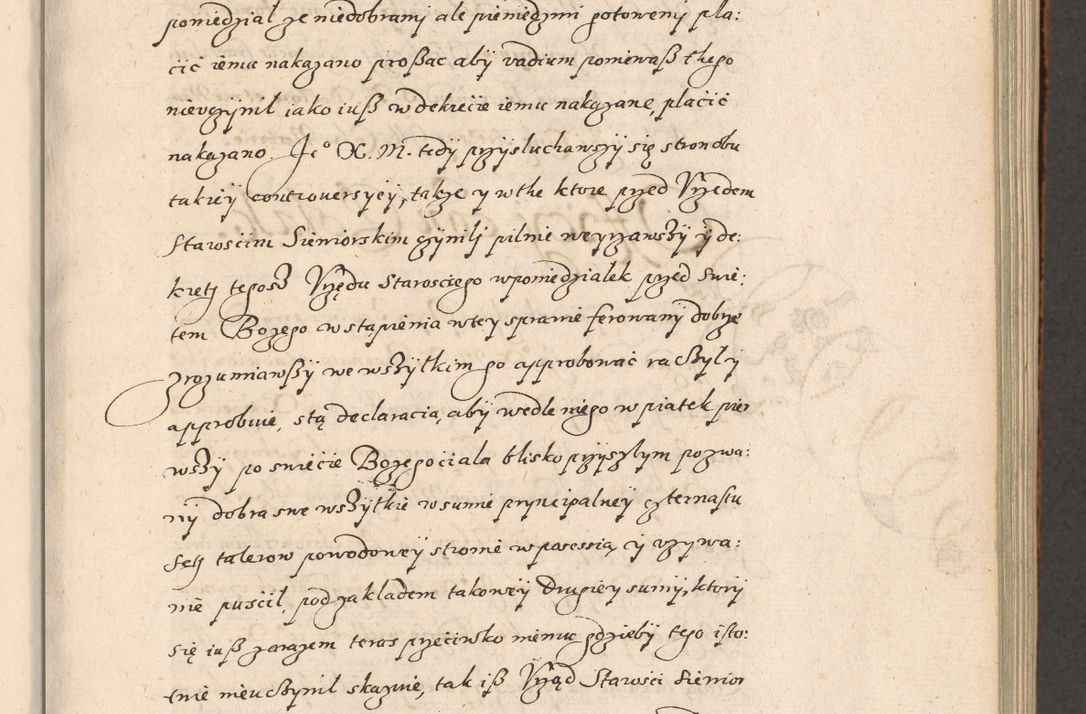 poniedzial ze niedobrami ale pieniedzmi gotowemi pla:
cić iemu nakazano proßac aby vadium poniewaß thego
nievczynil iako iuß w dekrecie iemu nakazane, placić
nakazano. Je° X. M. tedy przysluchawszy się stron obu
takiey controversyey, także y w the ktore przed Vrzedem
Starosćim Sieniorskim czynili pilnie weyzrawszy y de:
krety tegosz Vrzędu Starosciego w poniedzialek przed swie:
tem Bozego wstapienia w tey sprawie ferowany dobrze
zrozumiawßy we wszytkim go approbować raczyl y
approbuie, s tą declaracią, aby wedle niego w piatek pier
wszy po swiećie Bozego ciala blisko przyszlym pozwa:
ny dobra swe wszytkie w sumie pryncipalney czternastu
sety talerow powodowey stronie w posessią y vzywa:
nie puscil, pod zakladem takowey drugiey sumy, ktory
się iuß zarazem teras przećiwko niemu gdzieby tego isto:
tnie nieuczynil skazuie, tak iß Vrząd Starosci Sienior